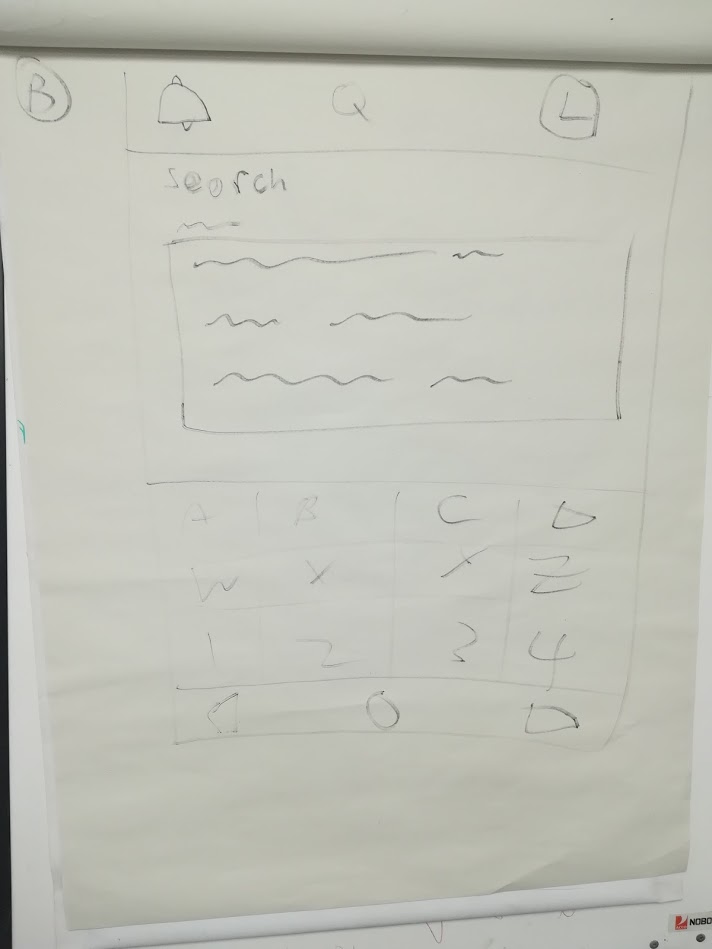 B
Search
A B C D
W X Y Z
1 2 3 4
NOBO